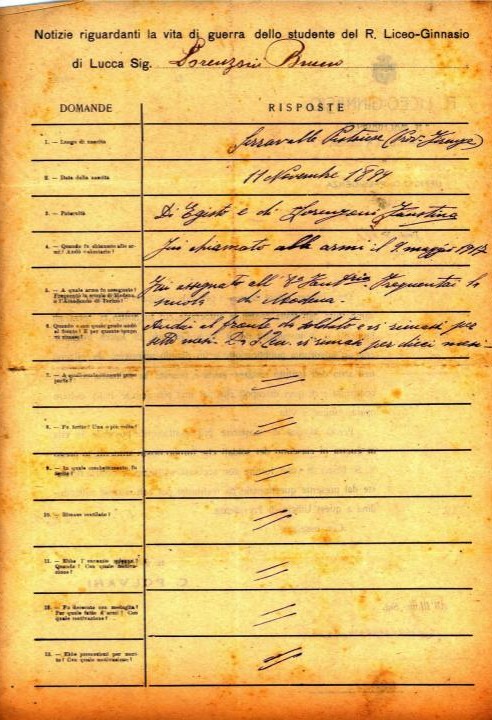 Notizie riguardanti la vita di guerra dello studente del R. Liceo-Ginnasio
di Lucca Sig. Lorenzoni Bruno
DOMANDE
RISPOSTE
1. — Luogo di nascita
Serravalle Pistoiese (Prov. Firenze)
2. — Data della nascita
11 Novembre 1899
3. — Paternità
Di Egisto e di Lorenzoni Faustina
4. — Quando fu chiamato alle ar-
mi? Andò volontario?
Fui chiamato alle armi il maggio 1917
5. — A quale arma fu assegnato?
Frequentò la scuola di Modena,
o l'Accademia di Torino?
Fui assegnato all' Fanteria. Frequentai la
scuola di Modena.
6. Quando e con quale grado andò
al fronte? E per quanto tempo
vi rimase?
Andai al fronte da soldato e vi rimasi per
sette mesi. vi rimasi per dieci mesi.
7. — A quali combattimenti prese
parte?
8. — Fu ferito? Una o più volte?
9. — In quale combattimento fu
ferito?
10. — Rimase mutilato?
11. — Ebbe l'encomio solenne?
Quando? Con quale motiva-
zione?
12. — Fu decorato con medaglia?
Per quale fatto d'armi? Con
quale motivazione?
13. — Ebbe promozioni per meri-
to? Con quale motivazione?